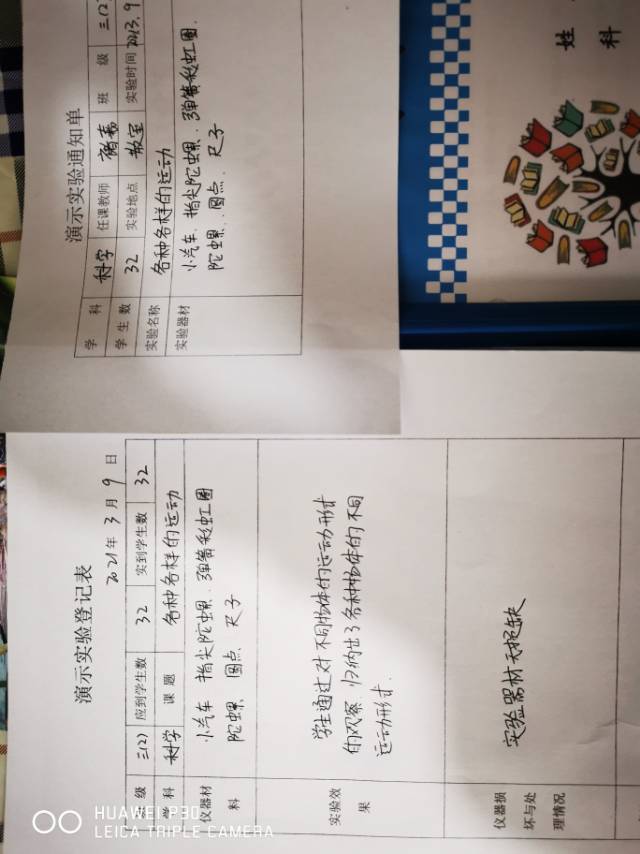 演示实验通知单
学 科 科学 任课教师 班 级 三(2)
学 生 数 32 实验地点 教室 实验时间
实验名称 各种各样的运动
实验器材 小汽车、指尖陀螺、弹簧彩虹圈、
陀螺、圆点、尺子
姓
科
演示实验登记表
2021年 3 月 9 日
级 三(2) 应到学生数 32 实到学生数 32
学 科 科学 课 题 各种各样的运动
仪器材料 小汽车 指尖陀螺、弹簧彩虹圈
陀螺、圆点 尺子
实验效果 学生通过对不同物体的运动形式
的观察,归纳出了各种物体的不同
运动形式.
仪器损坏与处理情况 实验器材无损缺
HUAWEI P30
LEICA TRIPLE CAMERA